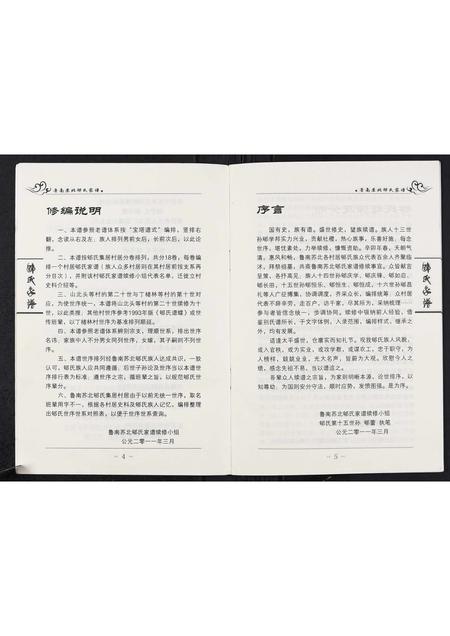 鲁南苏北郇氏家谱
修编说明
一、本谱参照老谱体系按“宝塔谱式”编排，竖排右
翻，念读从右及左；族人排列男前女后，长前次后，以此论
推。
二、本谱按郇氏集居村居分卷排列，共分18卷，每卷编
排一个村居郇氏家谱（族人众多村居则在其村居前按支系再
分目次），并附该村郇氏家谱续修小组代表名单，迁徙立村
史料介绍等。
三、山北头等村的第二十世与丁楮林等村的第十世对
应，为使统一，本谱将山北头等村的第二十世续修为十
世，以此类推，其他村世序参考1993年版《郇氏谱牒》或世
传班辈，以丁楮林世序为基准排列顺延。
四、本谱参照老谱体系辨别宗支，理顺世系，排出世序
名讳；家族中人不分男女同列世序，女嫁，其子嗣则不列世
序。
五、本谱世序排列经鲁南苏北郇氏族人达成共识，一致
认可，郇氏族人应共同遵循，后世子孙论及世序当以本谱世
序排行表为标准，遵世序之宗，循班辈之旨，以规范郇氏世
序辈分。
六、鲁南苏北郇氏集居村居由于以前无统一世序，取名
班辈用字不一，根据各村居史料及郇氏族人记忆，编排整理
出郇氏世序世系对照表，以便于世序世系查询。
鲁南苏北郇氏家谱续修小组
公元二零一一年三月
- 4 -
郇氏家谱
鲁南苏北郇氏家谱
序言
国有史，族有谱。盛世修史，望族续谱。族人十三世
孙郇学邦实力兴业，贡献社稷，热心族事，乐善好施，每念
世序，堪忧紊处，力举续修，慷慨资助。辛卯年春，天朗气
清，惠风和畅，鲁南苏北各村居郇氏族众代表百余人齐聚临
沭，拜祭祖墓，共商鲁南苏北郇氏家谱续修事宜。众皆献言
呈策，各抒高见，
礼等人广征博集，协调调度，齐采众长，编排统筹；众村居
代表不辞辛劳，走百户，访千家，尽其所为，采纳梳理——
参与者皆信念统一，步调协同。续修中辑纳前人经验，借
鉴别氏谱所长，于文字体例，入录范围，编排样式，继承之
外，均有发展。
适逢太平盛世，仓廪实而知礼节。观我郇氏族人风貌，
或入官秩，或为实业，或攻学教，或谋农工，忠于职守，为
人榜样，皆显有光，光大名声，蔚蔚为大观。欣慰今人之
绩，感念先祖不易，当以谱述之。
各辈众人续谱之宗旨，为家则明晰本源，论世排序，以
知尊幼，为国则安分守法，顺时应势，发愤图强。是为序。
鲁南苏北郇氏家谱续修小组
郇氏第十五世孙 郇蕾 执笔
公元二零一一年三月
- 5 -
郇氏家谱